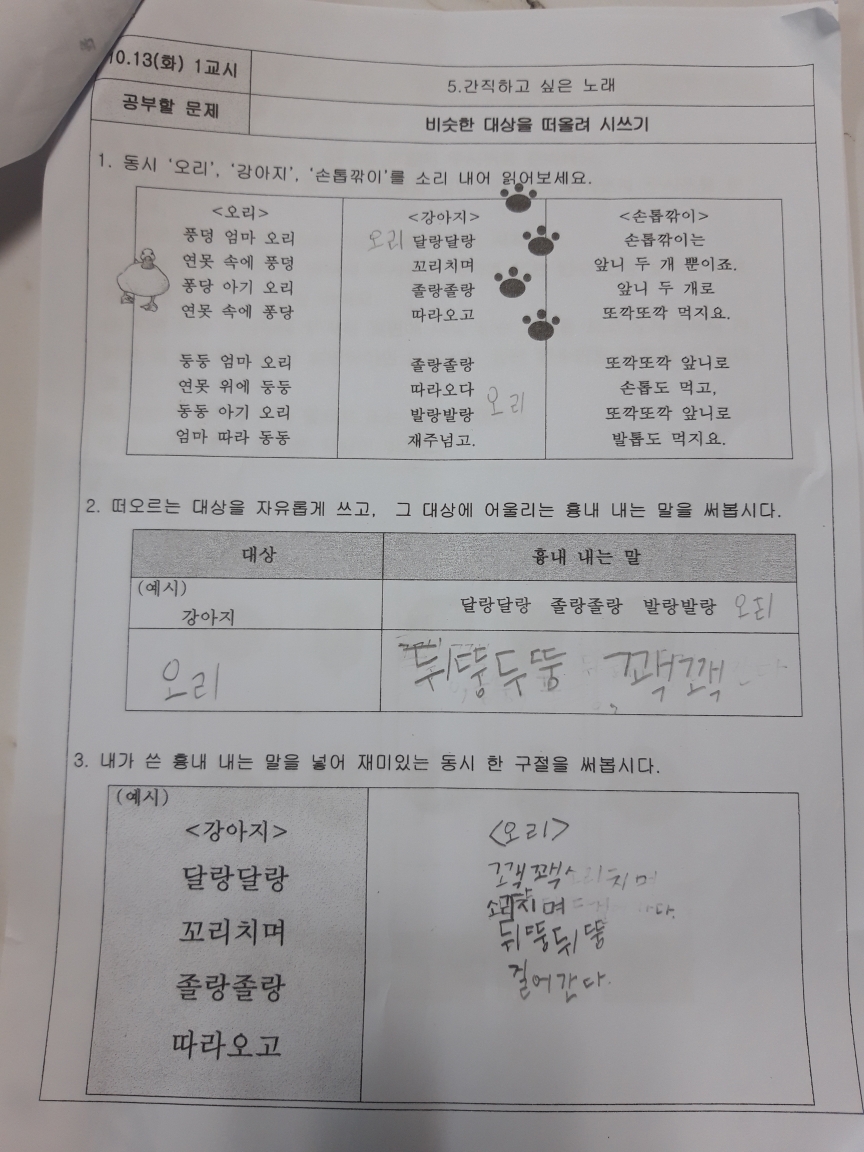 10.13(화) 1교시
5.간직하고 싶은 노래
공부할 문제
비슷한 대상을 떠올려 시쓰기
1. 동시 '오리', '강아지', '손톱깎이'를 소리 내어 읽어보세요.
<오리>
풍덩 엄마 오리
연못 속에 풍덩
퐁당 아기 오리
연못 속에 퐁당
둥둥 엄마 오리
연못 위에 둥둥
동동 아기 오리
엄마 따라 동동
<강아지>
오리 달랑달랑
꼬리치며
졸랑졸랑
따라오고
졸랑졸랑
따라오다
오리
발랑발랑
재주넘고.
<손톱깎이>
손톱깎이는
앞니 두 개 뿐이죠.
앞니 두 개로
또깍또깍 먹지요.
또깍또깍 앞니로
손톱도 먹고,
또깍또깍 앞니로
발톱도 먹지요.
2. 떠오르는 대상을 자유롭게 쓰고, 그 대상에 어울리는 흉내 내는 말을 써봅시다.
대상
흉내 내는 말
(예시)
강아지
달랑달랑 졸랑졸랑 발랑발랑
오리
뒤뚱두뚱 꽥꽥
3. 내가 쓴 흉내 내는 말을 넣어 재미있는 동시 한 구절을 써봅시다.
(예시)
<강아지>
달랑달랑
꼬리치며
졸랑졸랑
따라오고
<오리>
꽥꽥
소리치며
뒤뚱뒤뚱
걸어간다.